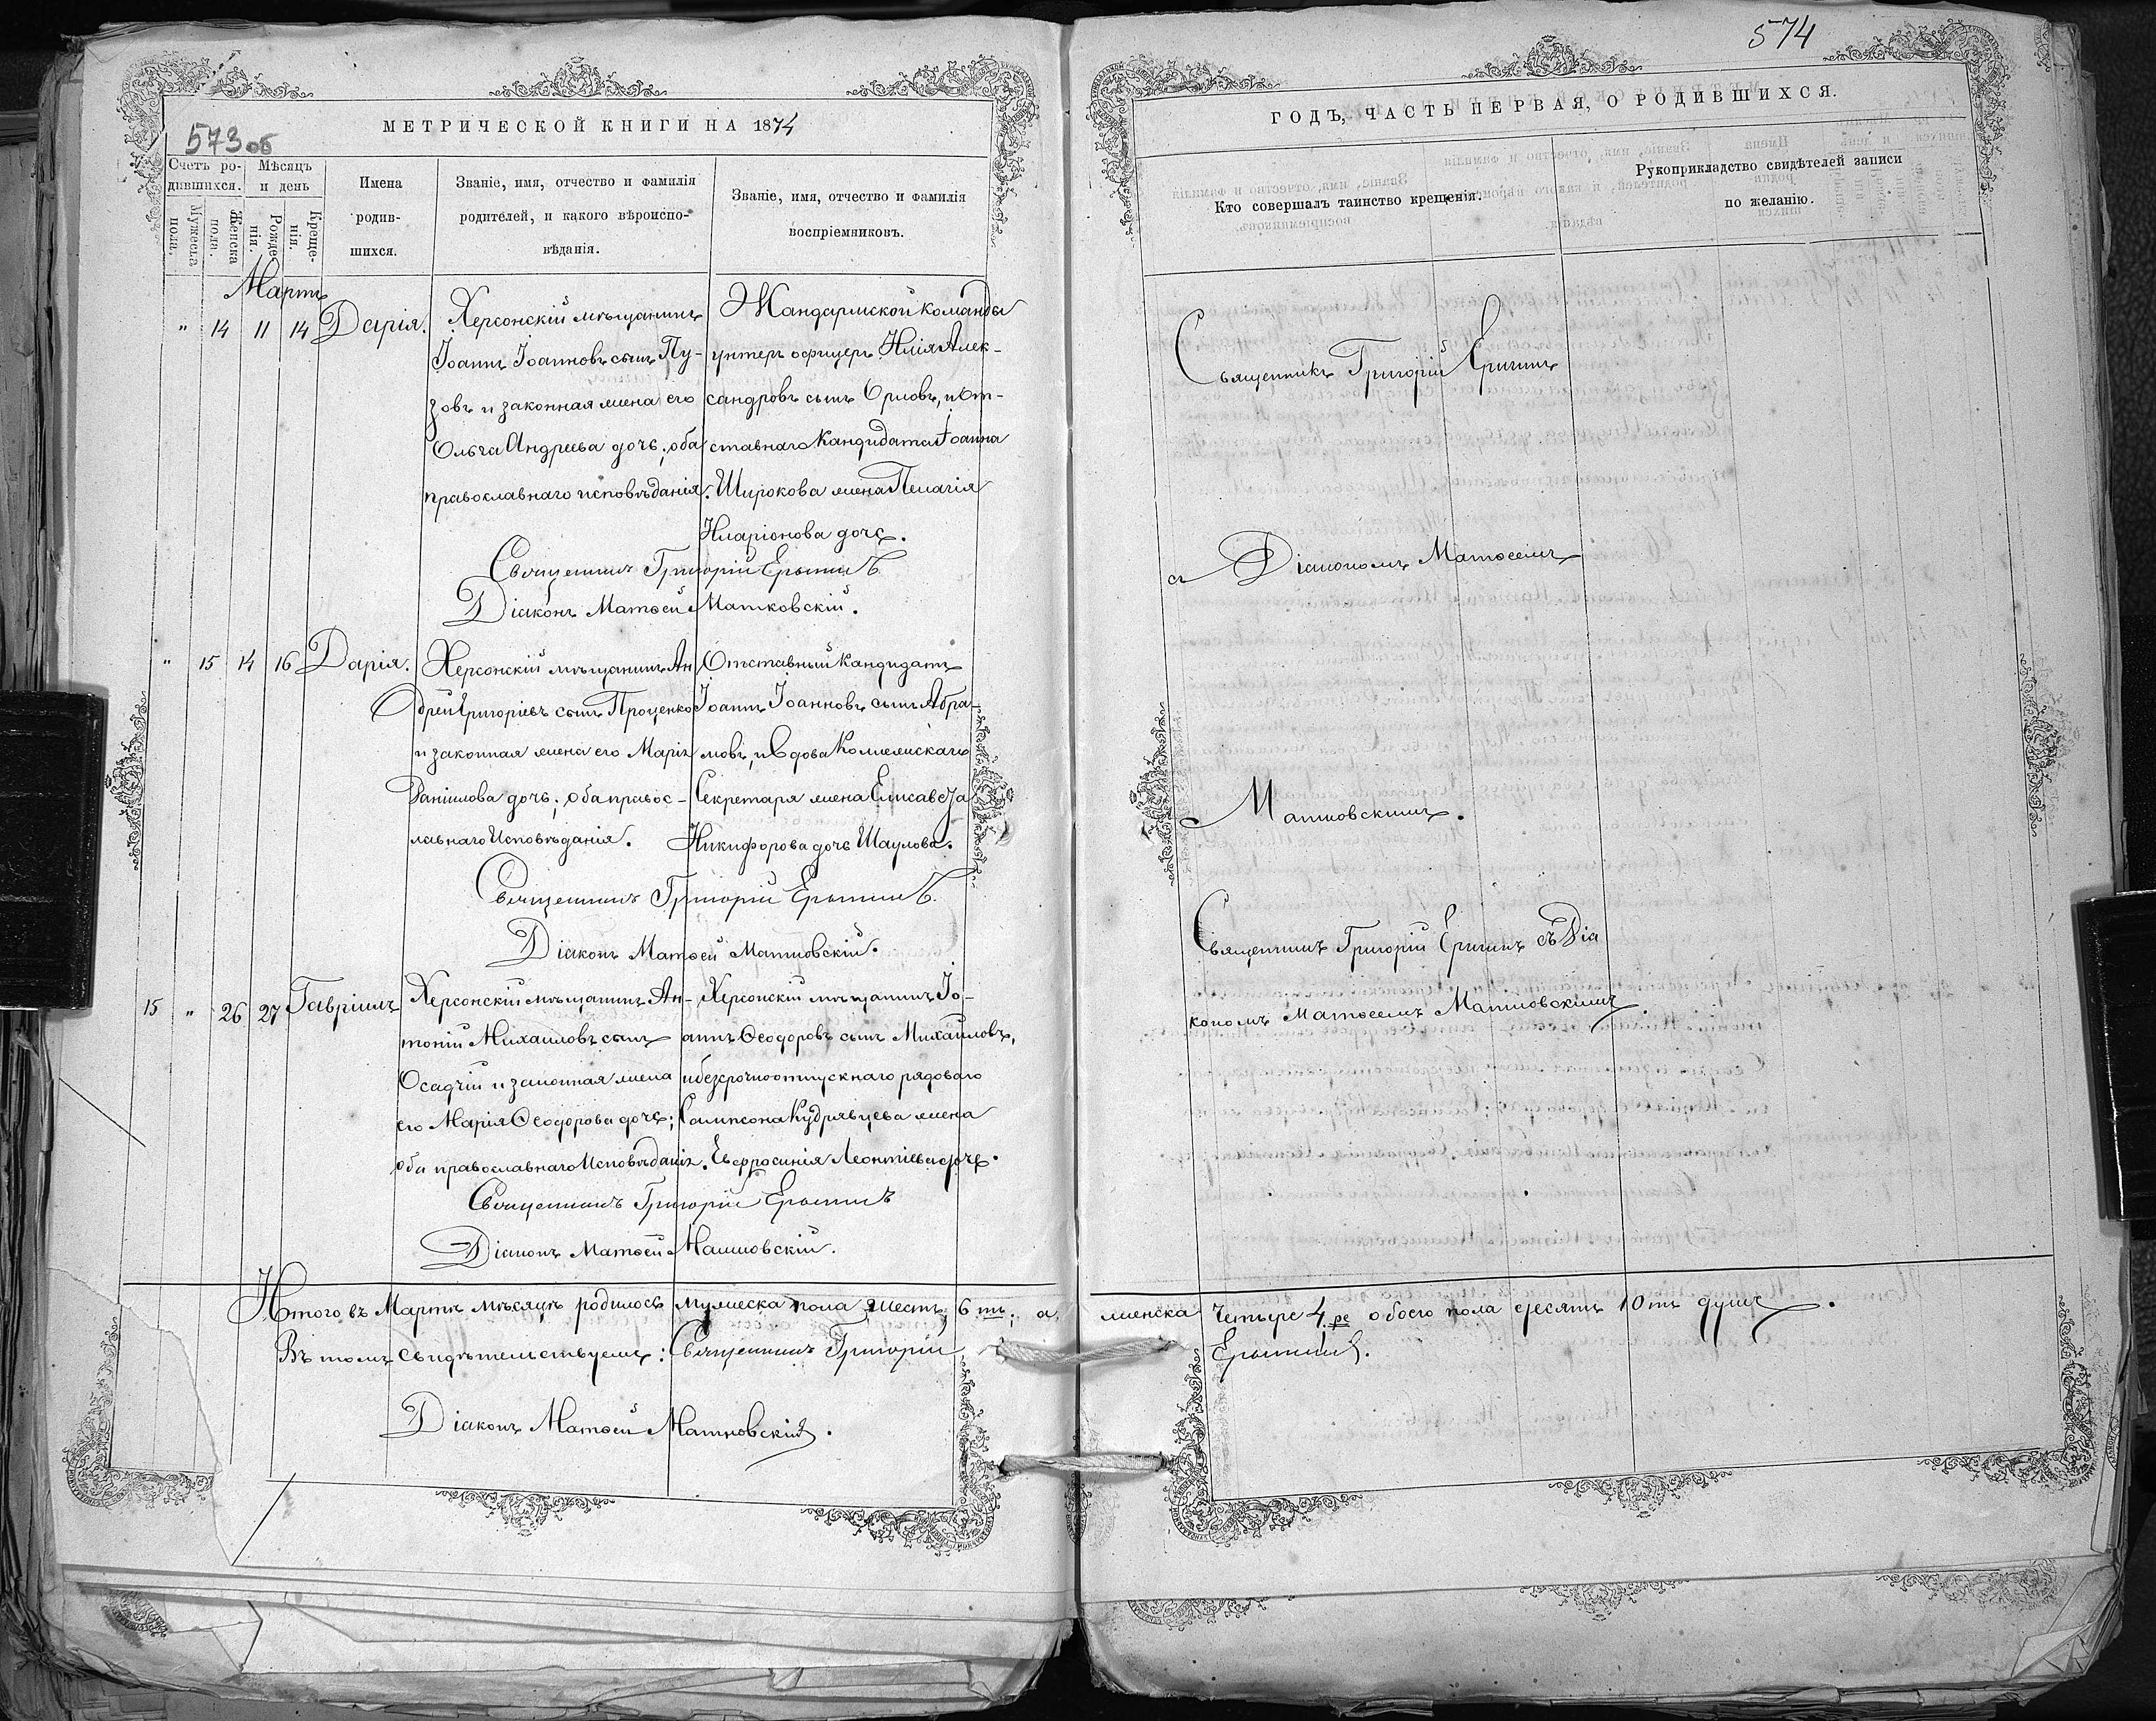 573 об
МЕТРИЧЕСКОЙ КНИГИ НА 1874
Счетъ ро-
дившихся.
Мужеска
пола.
Женска
пола.
Мѣсяцъ
и день
Рожде-
нія.
Креще-
нія.
Имена
родив-
шихся.
Званіе, имя, отчество и фамилія
родителей, и какого вѣроиспо-
вѣданія.
Званіе, имя, отчество и фамилія
воспріемниковъ.
Мартъ
" 14 11 14 Дарія.
Херсонскій мѣщанинъ
Іоаннъ Іоанновъ сынъ Пу-
зовъ и законная жена его
Ольга Андреева дочь; оба
православнаго исповѣданія.
Жандармской команды
унтеръ офицеръ Илія Алек-
сандровъ сынъ Орловъ, и От-
ставнаго Кандидата Іоанна
Широкова жена Пелагія
Иларіонова дочь.
Священникъ Григорій
Діаконъ Матѳей Матковскій.
" 15 14 16 Дарія.
Херсонскій мѣщанинъ Ан-
дрей Григоріевъ сынъ Проценко
и законная жена его Марія
Даніилова дочь; оба правос-
лавнаго Исповѣданія.
Отставный Кандидатъ
Іоаннъ Іоанновъ сынъ Абра-
мовъ, и Вдова Коллежскаго
Секретаря жена Елисавета
Никифорова дочь Шаулова.
Священникъ Григорій
Діаконъ Матѳей Матковскій.
15 " 26 27 Гавріилъ
Херсонскій мѣщанинъ Ан-
тоній Михаиловъ сынъ
Осадчій и законная жена
его Марія Ѳеодорова дочь;
оба православнаго Исповѣданія.
Херсонскій мѣщанинъ Іо-
аннъ Ѳеодоровъ сынъ Михайловъ,
и безсрочноотпускнаго рядоваго
Сампсона Кудрявцева жена
Евфросинія Леонтіева дочь.
Священникъ Григорій
Діаконъ Матѳей Матковскій.
Итого въ Мартѣ мѣсяцѣ родилось мужеска пола шесть, 6ть; а
Въ томъ свидѣтельствуемъ: Священникъ Григорій
Діаконъ Матѳей Матковскій.
574
ГОДЪ, ЧАСТЬ ПЕРВАЯ, О РОДИВШИХСЯ.
Кто совершалъ таинство крещенія.
Рукоприкладство свидѣтелей записи
по желанію.
Священникъ Григорій
съ Діакономъ Матѳеемъ
Матковскимъ.
Священникъ Григорій съ Діа
кономъ Матѳеемъ Матковскимъ.
женска четыре 4ре обоего пола десять 10ть душъ.